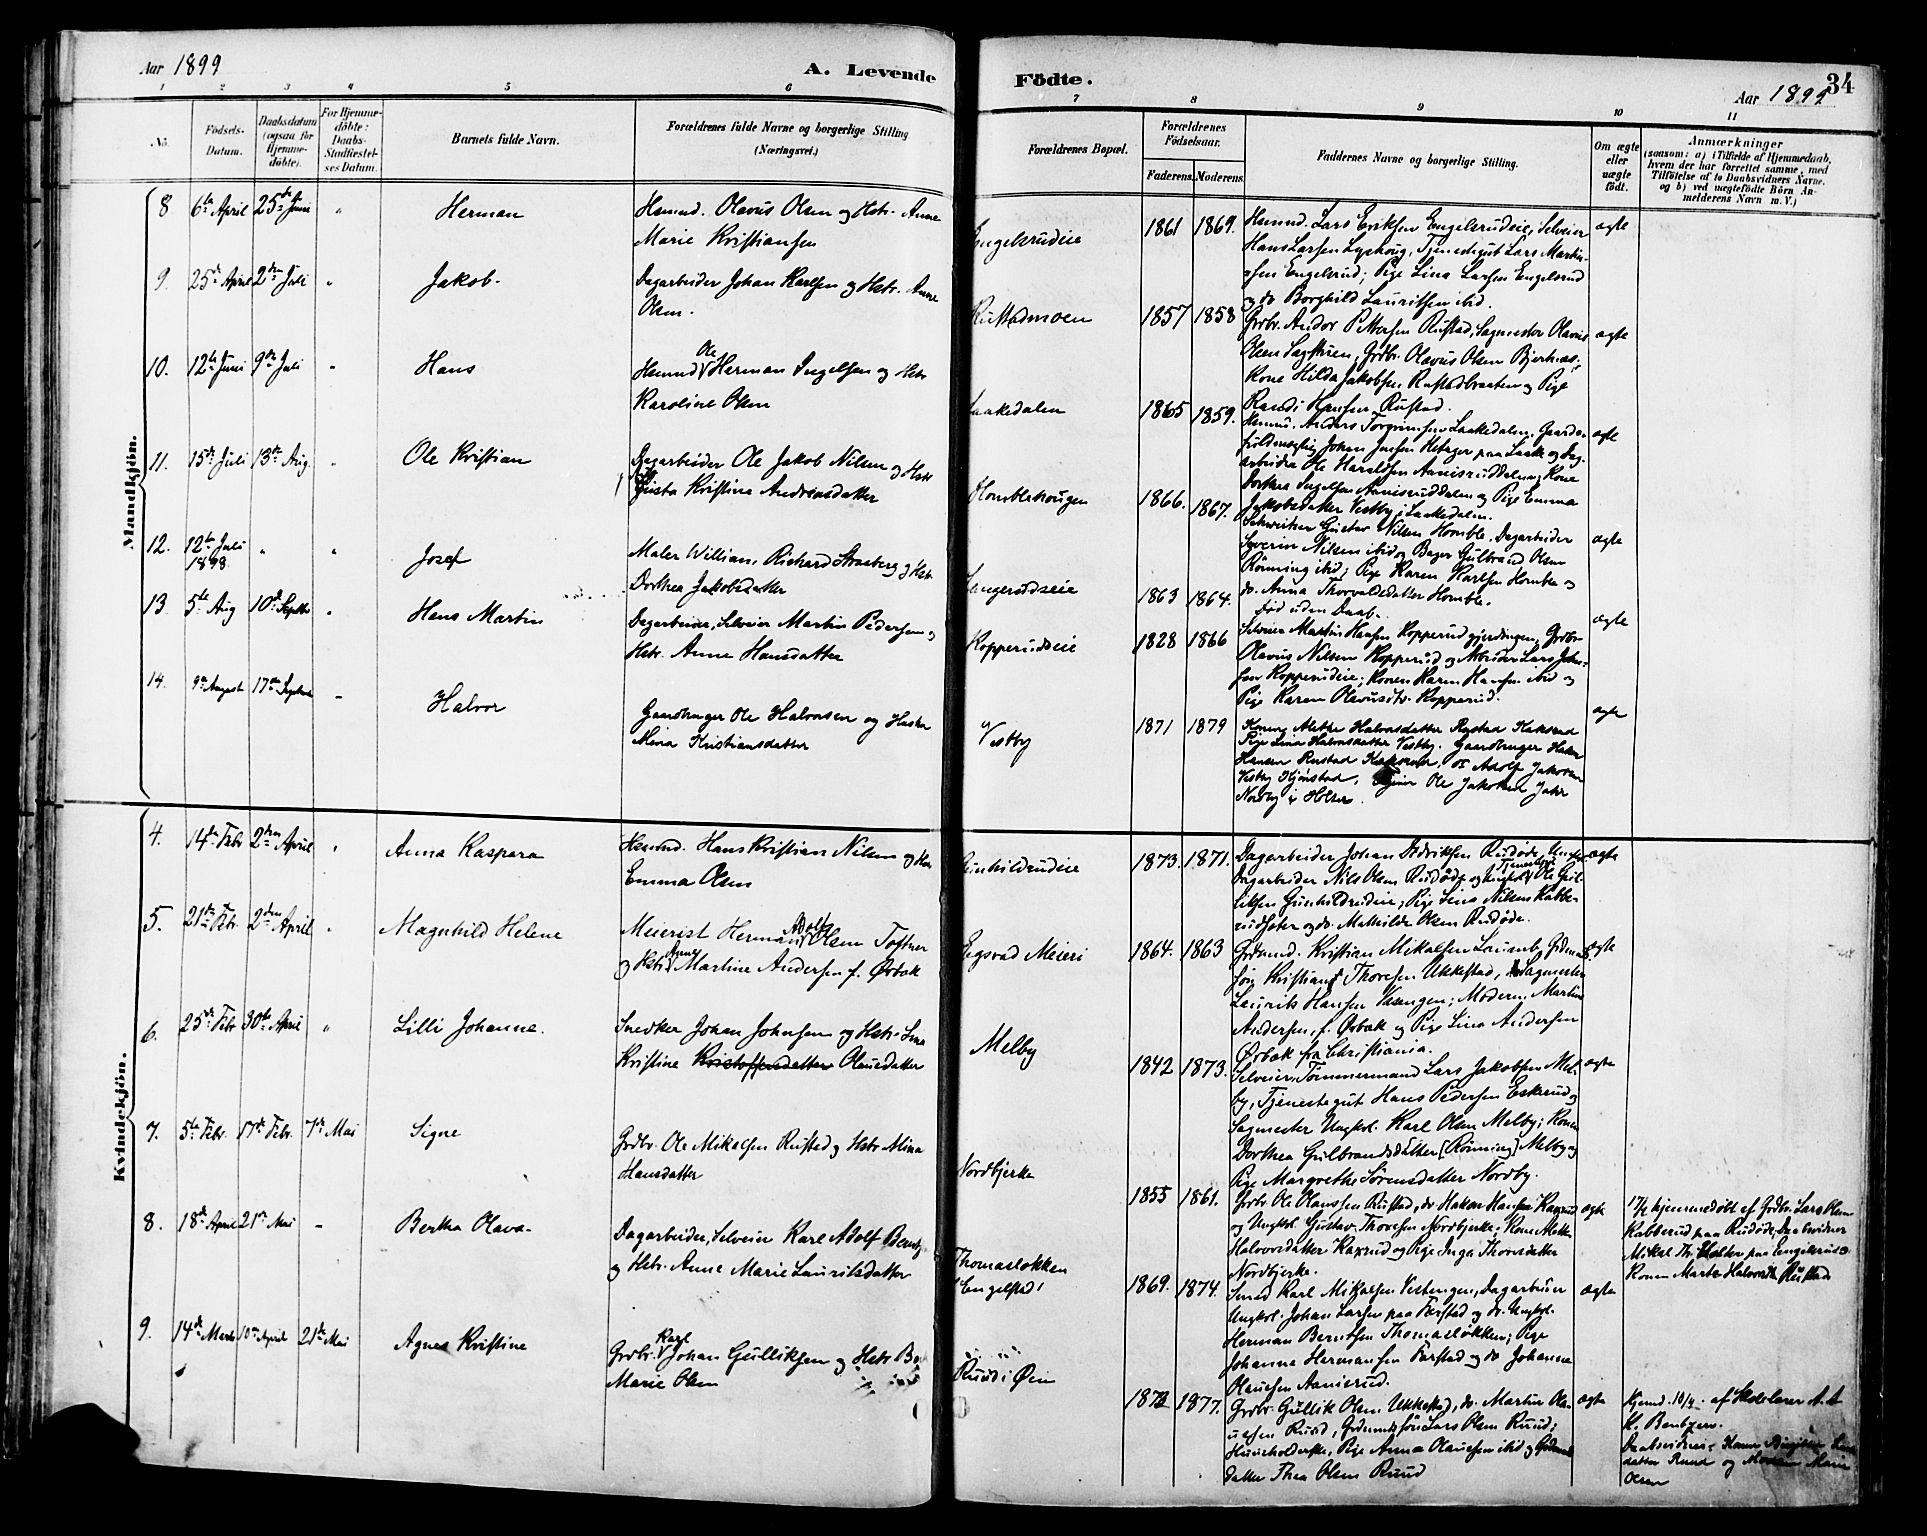 Aar 1899
A. Levende
Födte.
34
Aar 1899
1 2 3 4 5 6 7 8 9 10 11
No.
Födsels-
Datum.
Daabsdatum
(ogsaa for
Hjemme-
döbte).
For Hjemme-
döbte:
Daabs-
Stadfæstel-
ses Datum.
Barnets fulde Navn.
Forældrenes fulde Navne og borgerlige Stilling
(Næringsvei.)
Forældrenes Bopæl.
Forældrenes
Födselsaar.
Faderens. Moderens.
Faddernes Navne og borgerlige Stilling.
Om ægte
eller
uægte
födt.
Anmærkninger
(saasom: a) i Tilfælde af Hjemmedaab,
hvem der har forrettet samme, med
Tilföielse af to Daabsvidners Navne,
og b) ved uægtefödte Börn An-
melderens Navn m. V.)
Mandkjön.
8 6te April 25de Juni " Herman
Husmd. Olavus Olsen og Hstr. Anne
Marie Kristiansen
Engelsrudeie 1861 1869.
Husmd. Lars Eriksen Engelsrudeie, Selveier
Hans Larsen Lyshoug, Tjenestegut Lars Martin-
sen Engelsrud; Pige Lina Larsen Engelsrud
og do Borghild Lauritsen ibid.
ægte
9. 25de April 2den Juli " Jakob.
Dagarbeider Johan Karlsen og Hstr. Anne
Olsen.
Rustadmoen 1857 1858
Grdbr. Andor Pettersen Rustad, Sagmester Olavus
Olsen Sagstuen, Grdbr. Olavus Olsen
Kone Hilda Jakobsen, Rustadbraaten og Pige
Randi Hansen Rustad.
ægte
10. 12te Juni 9de Juli " Hans
Husmd Ole Herman Ingelsen og Hstr
Karoline Olsen
Laakedalen 1865 1859.
Husmd. Anders Torgrimsen Laakedalen, Gaards-
fuldmægtig Johan Jensen paa Laake og Dag-
arbeider Ole Haraldsen Aanisruddalen; Kone
Dorthea Ingelsen Aanisruddalen og Pige Emma
Jakobsdatter Vestby i Laakedalen.
ægte
11. 15de Juli 13de Aug. " Ole Kristian
Dagarbeider Ole Jakob Nilsen og Hstr
Gusta Kristine Andreasdatter
Homblehougen 1866. 1867.
Schweitzer Gustav Nilsen Homble, Dagarbeider
Syverin Nilsen ibid og Bager Gulbrand Olsen
Rönning ibid; Pige Karen Karlsen Homble og
do. Anna Thorvaldsdatter Homble.
ægte
12. 12te Juli
1898 " " Josef
Maler William Richard Strasberg og Hstr.
Dorthea Jakobsdatter
Langerudseie 1863 1864.
Död uden Daab.
ægte
13. 5te Aug 10de Septbr " Hans Martin
Dagarbeider, Selveier Martin Pedersen og
Hstr. Anne Hansdatter
Kopperudseie 1828 1866
Selveier Martin Hansen Kopperudgjerdingen, Grdbr
Olavus Nilsen Kopperud og Arbeider Lars Johan-
sen Kopperudeie; Konen Karen Hansen ibid og
Pige Karen Olavusdtr. Kopperud.
ægte
14. 9de August 17de Septbr " Halvor
Gaardbruger Ole Halvorsen og Hustru
Mina Kristiansdatter
Vestby 1871 1879
Konerne Methe Halvorsdatter Rustad Kaksrud
Pige Lina Halvorsdatter Vestby. Gaardbruger Hakon
Hansen Rustad Kaksrud, Adolf Jakobsen
Vestby Hjönstad, Ole Jakobsen
Nordby i Hölen.
ægte
Kvindekjön.
4. 14de Febr 2den April " Anna Kaspara
Husmd. Hans Kristian Nilsen og Hstr
Emma Olsen
Gunhildrudeie 1873. 1871.
Dagarbeider Johan Andriksen Rudöde,
Dagarbeider Nils Olsen Rudöde og Tjenestgut Ole Gul-
liksen Gunhildrudeie, Pige Lina Nilsen Kabbe-
rudsæter og do. Mathilde Olsen Rudöde.
ægte
5. 21de Febr. 2den April " Magnhild Helene
Meierist Herman Adolf Olsen Toftner
og Hstr Anne Martine Andersen f. Ørbæk
Egsvad Meieri 1864. 1863
Grdmd. Kristian Mikalsen, Grdmands-
sön Kristian Thoresen Ukkestad, Sagmester
Laurits Hansen Vaangen; Moderen Martine
Andersen, f. Ørbæk og Pige Lina Andersen
Ørbæk fra Christiania.
ægte
6. 25de Febr 30te April " Lilli Johanne.
Snedker Johan Johnsen og Hstr. Lina
Kristine Kristoffersdatter Olausdatter
Melby 1842 1873.
Selveier, Tömmermand Lars Jakobsen Mel-
by, Tjenestegut Hans Pedersen Eskerud og
Sagmester Ungkrl. Karl Olsen Melby; Konen
Dorthea Gulbrandsdatter (Rönning) Melby og
Pige Margrethe Sörensdatter Nordby.
ægte
7. 5te Febr. 17de Febr. 7de Mai Signe
Grdbr. Ole Mikalsen Rustad og Hstr Mina
Hansdatter
Nordbjerke 1855 1861.
Grdbr Ole Olaussen Rustad, do Hakon Hansen Kaxrud
og Ungkrl. Gustav Thoresen Nordbjerke; Kone Mette
Halvorsdatter Kaxrud og Pige Inga Thoresdatter
Nordbjerke.
ægte
17/2 hjemmedöbt af Grdbr. Lars Olsen
Kabberud paa Rudöde, Daabsvidner
Mikal Th. Holter paa Engelsrud og
Konen Marte Halvorsdtr Rustad
8. 18de April 21de Mai " Bertha Olava.
Dagarbeider, Selveier Karl Adolf
og Hstr. Anne Marie Lauritsdatter
Thomaslökken
(Engelstad) 1869. 1874.
Smed Karl Mikalsen Vestengen, Dagarbeider
Ungkrl. Johan Larsen paa Farstad og do. Ungkrl.
Herman Berntsen Thomaslökken; Pige
Johanna Hermansen Farstad og do Johanna
Olausen Aanisrud.
ægte
9. 14de Marts 10de April 21de Mai Agnes Kristine
Grdbr. Karl Johan Gulliksen og Hstr
Marie Olsen
Ruud i Øen 1873 1877.
Grdbr. Gullik Olsen Ukkestad, do. Martin Ola-
usen Ruud, Grdmandssön Lars Olsen Ruud;
Husholderske, Pige Anna Olausen ibid og Grdmds
datter Thea Olsen Ruud
ægte
Hjemd. 10/4 af Skolelærer A. A
Kl. Benbjerv.
Daabsvidner: Konen Birgitte Lars
datter Ruud og Moderen Marie
Olsen